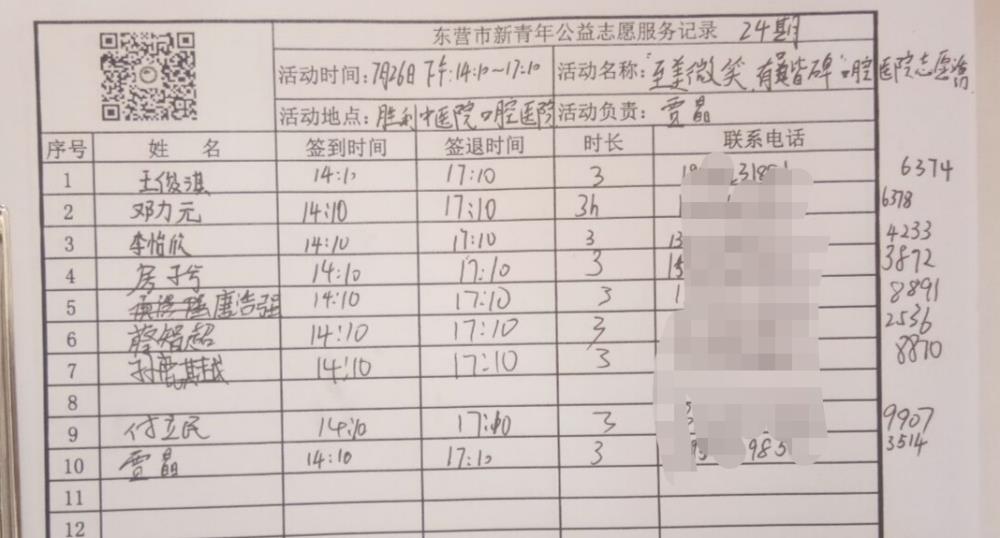 东营市新青年公益志愿服务记录 24期
活动时间: 7月26日 下午: 14:10~17:10 活动名称: "至美微笑, 有口皆碑"口腔医院志愿活
活动地点: 胜利中医院口腔医院 活动负责: 贾晶
序号 姓 名 签到时间 签退时间 时长 联系电话
1 王俊淇 14:10 17:10 3 6374
2 邓力元 14:10 17:10 3h 6378
3 李怡欣 14:10 17:10 3 13 4233
4 房子兮 14:10 17:10 3 15 3872
5 康浩强 14:10 17:10 3 1 8891
6 蔡智超 14:10 17:10 3 2536
7 14:10 17:10 3 8870
8
9 付立民 14:10 17:10 3 9907
10 贾晶 14:10 17:10 3 985 3514
11
12